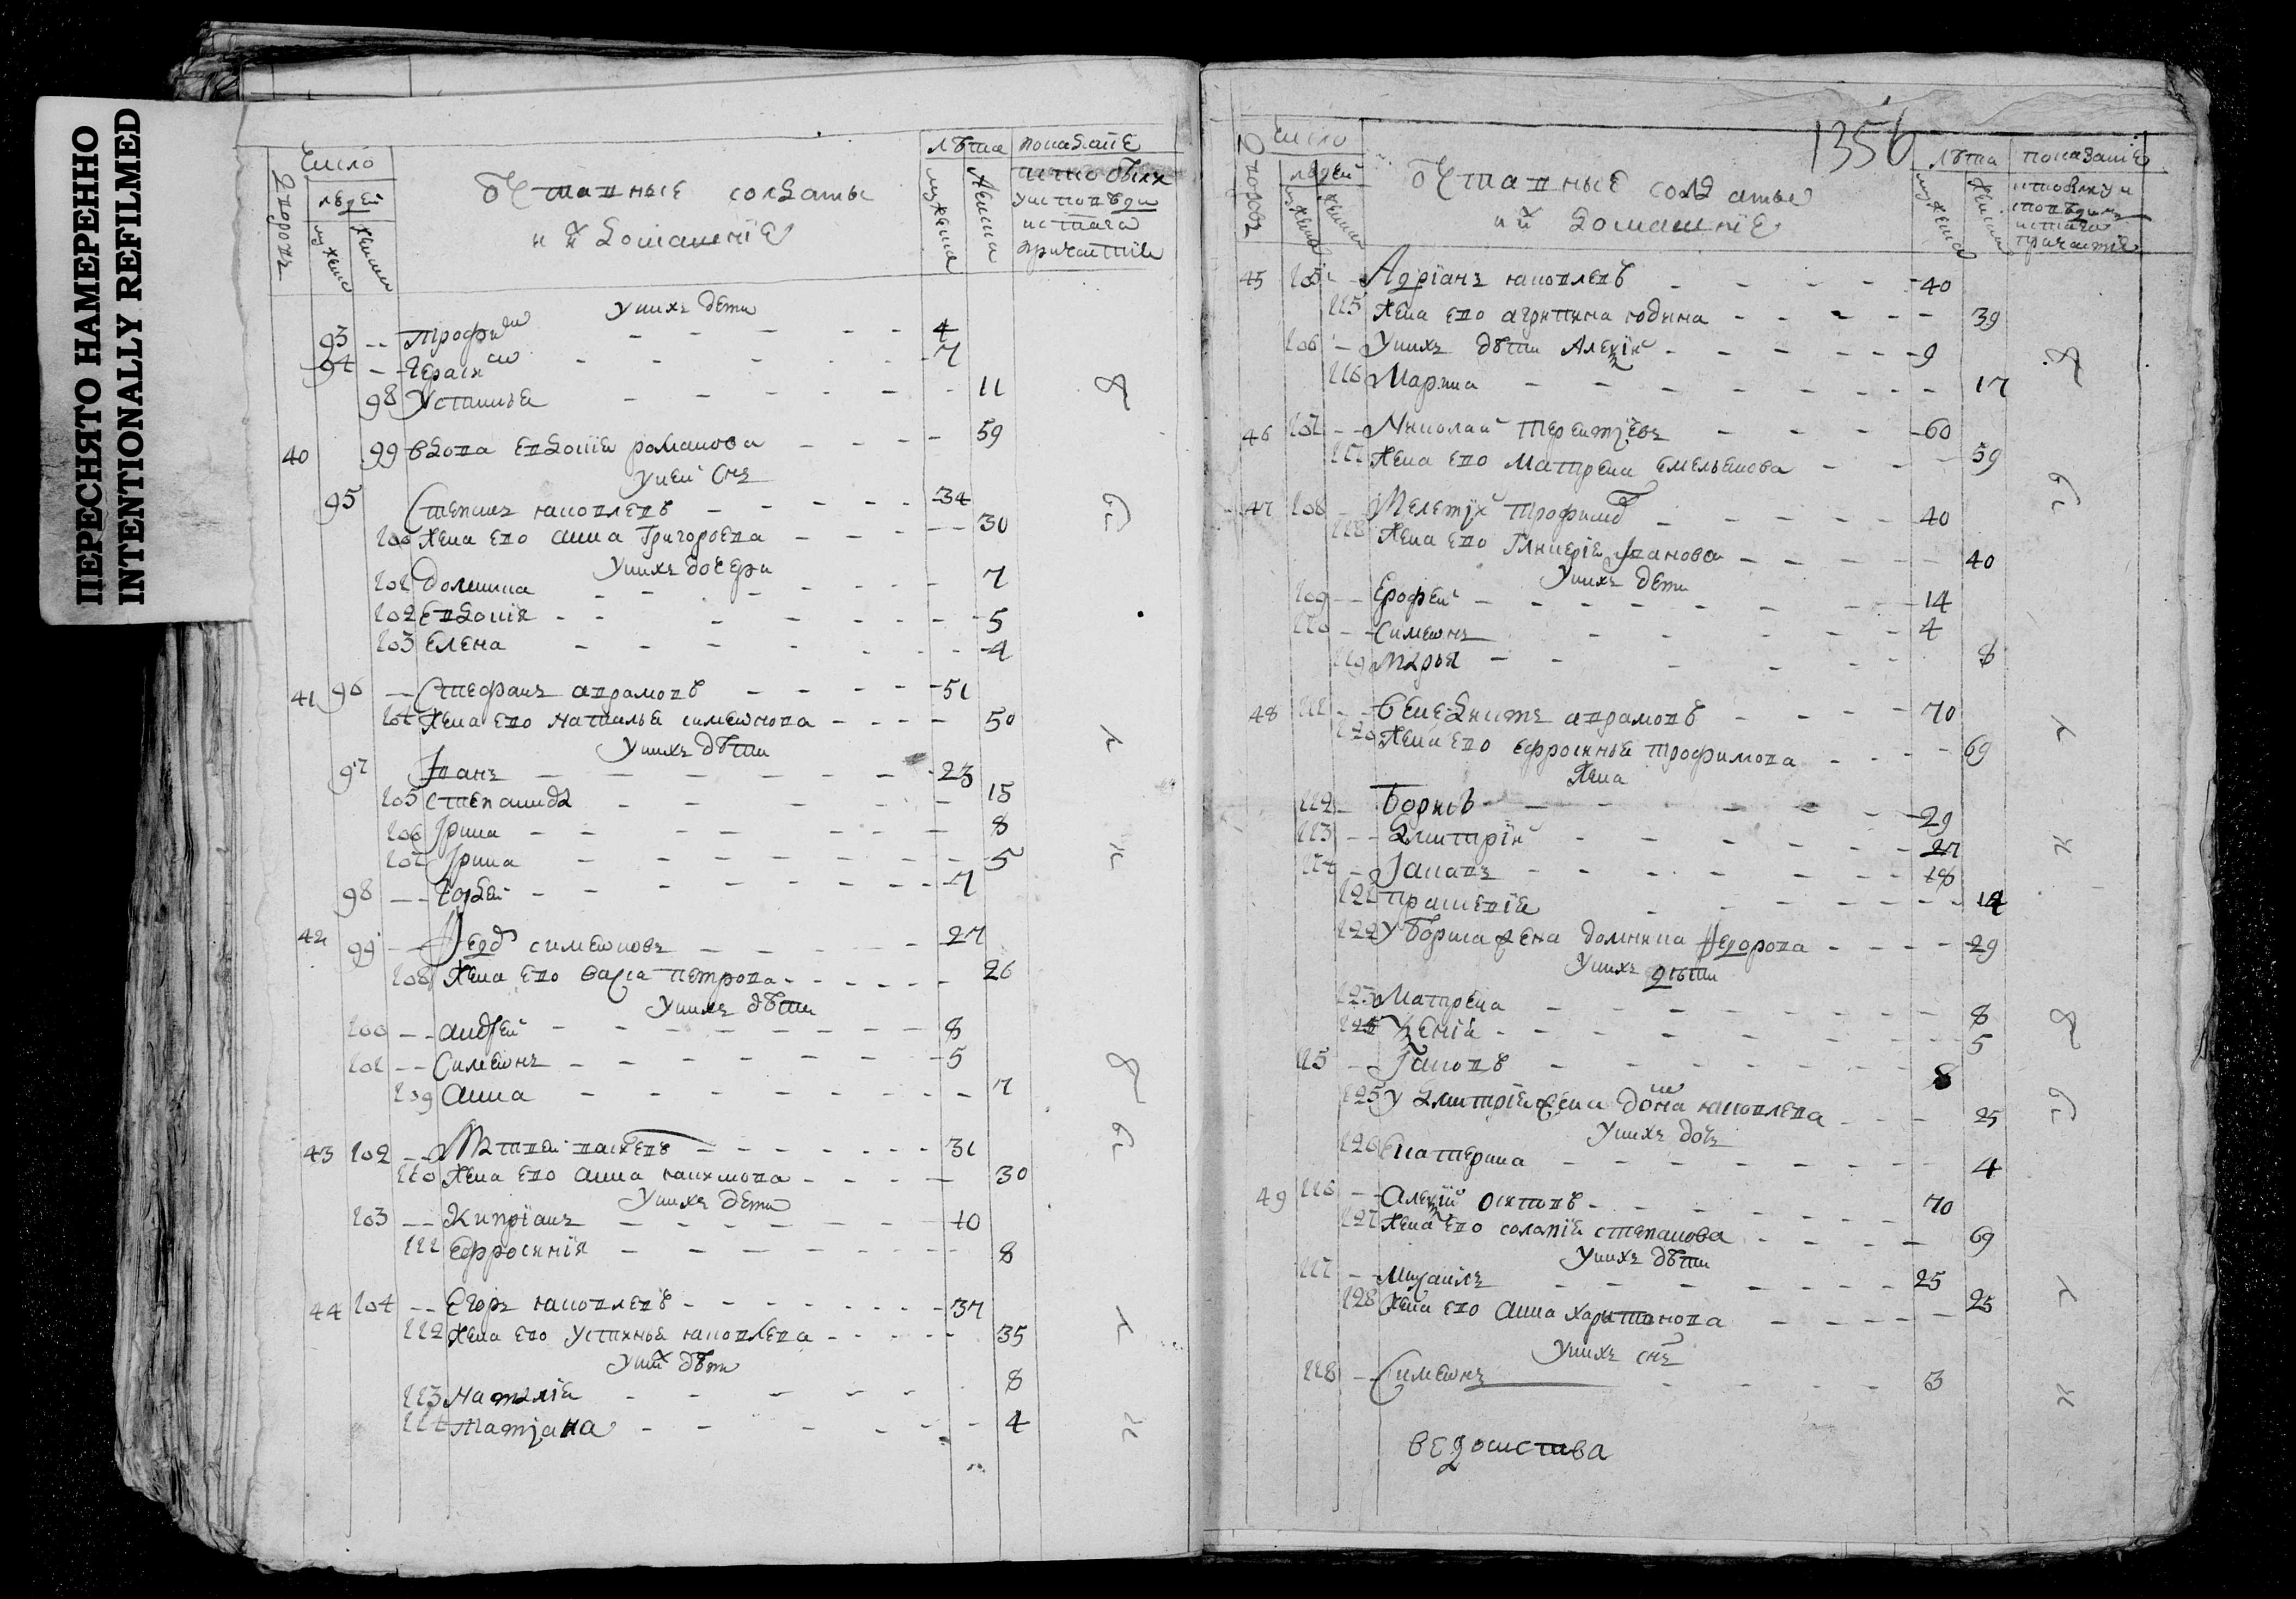 ПЕРЕСНЯТО НАМЕРЕННО
INTENTIONALLY REFILMED
число
людей
дворовъ
мужеска
женска
отставные солдаты
и их домашние
лѣта
мужеска
женска
показание
кто былъ
у исповѣди
и святаго
причастия
у нихъ дети
93 -- трофим 4
94 -- герасим 7
98 Устинья 11
40 99 вдова евдокия романова 59
у ней снъ
95 Степанъ яковлевъ 34
100 жена ево анна григорьева 30
у нихъ дочери
101 домнина 7
102 евдокия 5
103 елена 4
41 96 -- Стефанъ аврамовъ 51
104 жена ево наталья симеонова 50
у нихъ дѣти
97 Іванъ 23
105 степанида 15
106 Ірина 8
107 Ірина 5
98 -- гордей 7
42 99 -- Ѳедоръ симеоновъ 27
108 жена ево васса петрова 26
у нихъ дѣти
100 -- андрей 8
101 -- Симеонъ 5
109 анна 7
43 102 -- Матвей 31
110 жена ево анна 30
у нихъ дети
103 -- Киприанъ 10
111 ефросиния 8
44 104 -- Егоръ яковлевъ 37
112 жена ево устинья яковлева 35
у них дѣти
113 наталия 8
114 татіана 4
1356
число
людей
дворовъ
мужеска
женска
отставные солдаты
и их домашние
лѣта
мужеска
женска
показание
кто былъ у
исповѣди
и святаго
причастия
45 105 -- Адріанъ яковлевъ 40
115 жена ево агрипина юдина 39
106 -- У нихъ дѣти Алеѯій 9
116 Марина 17
46 107 -- Николай терентьевъ 60
117 жена ево матрена емельянова 59
47 108 -- Мелетій трофимов 40
118 жена ево гликерия Іванова 40
у нихъ дети
109 -- Ерофей 14
110 -- симеонъ 4
119 марья 8
48 111 -- бенедиктъ аврамовъ 70
120 жена ево ефросинья трофимова 69
112 -- борисъ 29
113 -- Дмитрій 27
114 -- 18
121 прасковия 14
122 у бориса жена домника Ѳедорова 29
у нихъ дѣти
123 матрена 8
124 ѯения 5
115 -- Іаковъ 8
125 у дмитрия жена домна яковлева 25
у нихъ дочь
126 екатерина 4
49 116 -- алеѯій 70
127 жена ево степанова 69
у нихъ дѣти
117 -- михаилъ 25
128 жена ево анна харитонова 25
у нихъ снъ
118 -- Симеонъ 3
ведомства